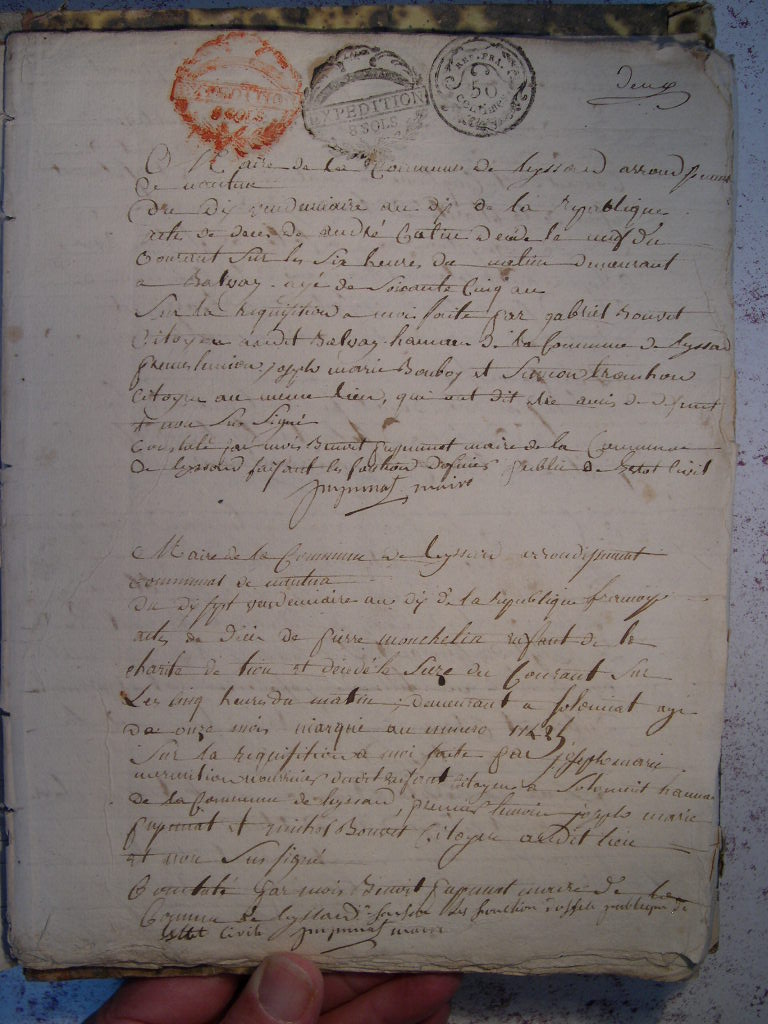 EXPEDITION
8 SOLS
EXPEDITION
8 SOLS
REP. FRA.
50
Centime
deux
Maire de la Commune de leyssard arrondissement
de nantua
Du dix vendemiaire an dix de la Republique
acte de deces de andré decede le neuf du
Courant Sur les Six heures du matin demeurant
a Balvay agé de Soixante Cinq an
Sur la requisition a moi faite par gabriel Bouvet
Citoyen audit Balvay hamau de la Commune de leyssard
premier temoin, joseph marie et Simon
Citoyen au meme lieu, qui ont dit etre amis de defunt
et non Sus Signé
Constaté par mois Benoit maire de la Commune
De leyssard faisant les fonction public de letat Civil
maire
Maire de la Commune de leyssard arrondissement
communal de nantua
Du dix sept vendemiaire an dix de la republique
acte de de pierre enfant de la
charité de lion et decedé le Seize du Courant Sur
Les cinq heures du matin, demeurant a Solomiat agé
de onze mois marqué au numero
Sur la requisition a moi faite par joseph marie
nourricier dudit enfant citoyen a Solomiat hamau
de la Commune de leyssard, premier temoin joseph marie
et michel Bouvet Citoyen audit lieu
et non Sus signé
Constaté par mois Benoit maire de la
Commune de leyssard faisant les fonction publique de
letat Civile maire